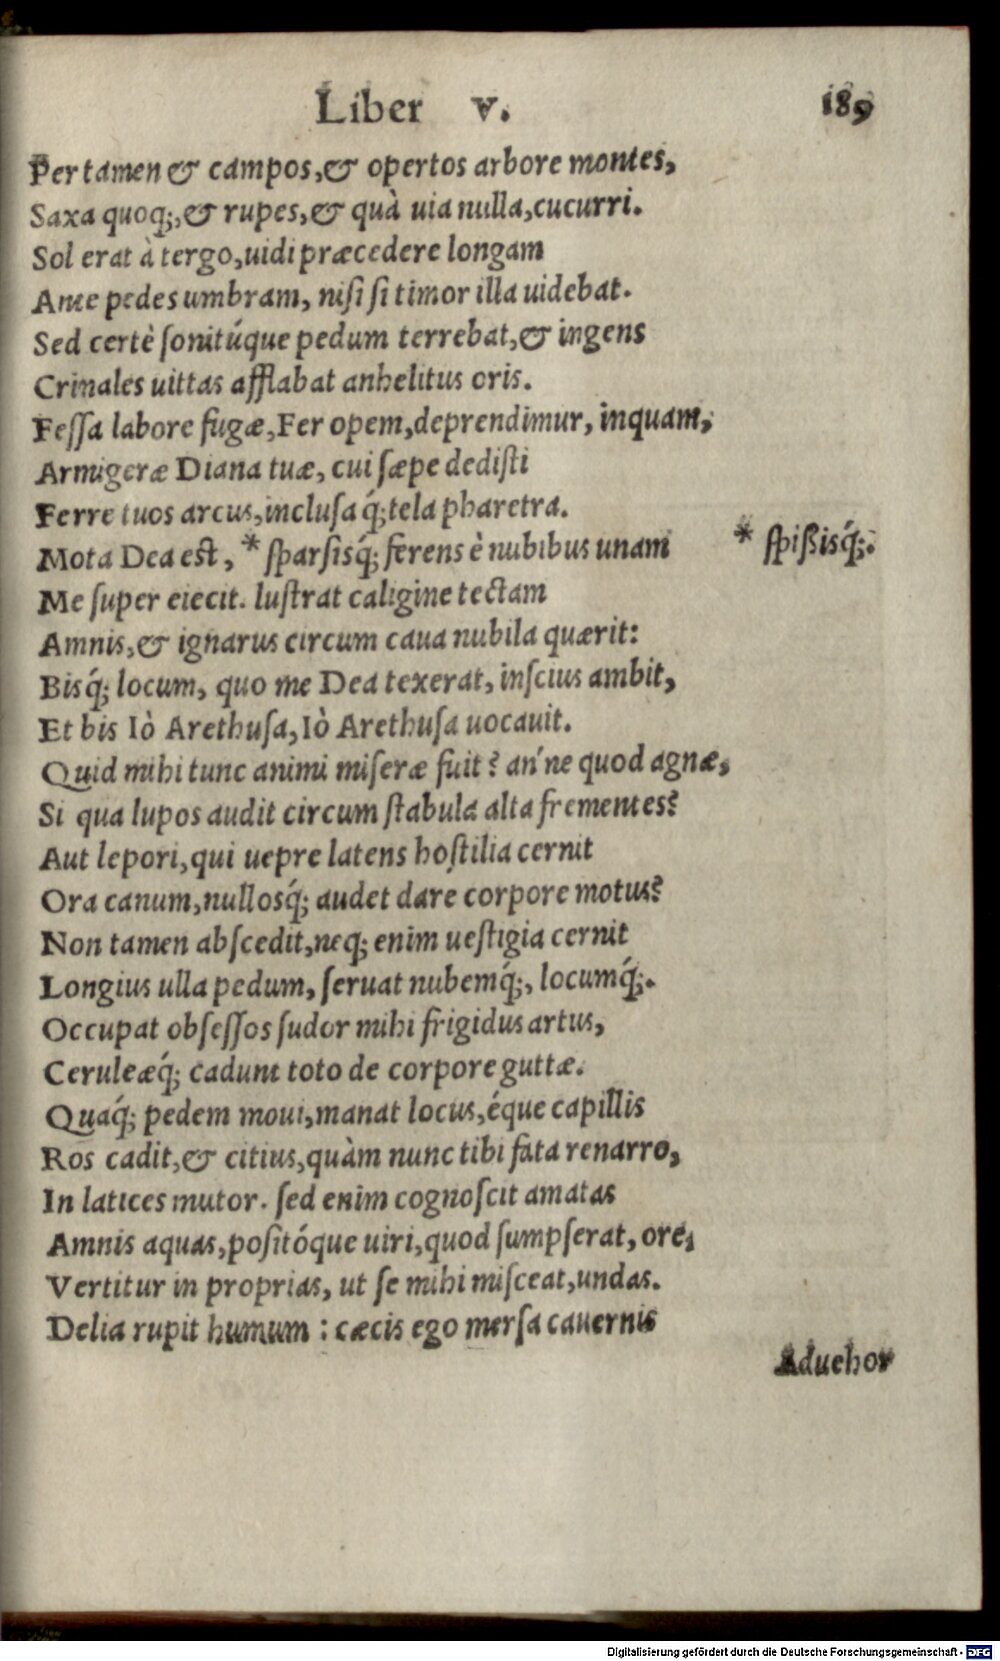 Liber V. 189
Per tamen & campos, & opertos arbore montes,
Saxa quoq;, & rupes, & quà uia nulla, cucurri.
Sol erat à tergo, uidi præcedere longam
Ante pedes umbram, niſi ſi timor illa uidebat.
Sed certè ſonitúque pedum terrebat, & ingens
Crinales uittas afflabat anhelitus oris.
Feſſa labore fugæ, Fer opem, deprendimur, inquam,
Armigeræ Diana tuæ, cui ſæpe dediſti
Ferre tuos arcus, incluſa q́; tela pharetra.
Mota Dea eſt, * ſparſisq́; ferens è nubibus unam * ſpiſsisq́;.
Me ſuper eiecit. luſtrat caligine tectam
Amnis, & ignarus circum caua nubila quærit:
Bisq́; locum, quo me Dea texerat, inſcius ambit,
Et bis Iò Arethuſa, Iò Arethuſa uocauit.
Quid mihi tunc animi miſeræ fuit? an'ne quod agnæ,
Si qua lupos audit circum ſtabula alta frementes?
Aut lepori, qui uepre latens hoſtilia cernit
Ora canum, nullosq́; audet dare corpore motus?
Non tamen abſcedit, neq; enim ueſtigia cernit
Longius ulla pedum, ſeruat nubemq́;, locumq́;.
Occupat obſeſſos ſudor mihi frigidus artus,
Ceruleæq́; cadunt toto de corpore guttæ.
Quaq́; pedem moui, manat locus, éque capillis
Ros cadit, & citius, quàm nunc tibi fata renarro,
In latices mutor. ſed enim cognoſcit amatas
Amnis aquas, poſitóque uiri, quod ſumpſerat, ore,
Vertitur in proprias, ut ſe mihi miſceat, undas.
Delia rupit humum: cæcis ego merſa cauernis
Aduehor
Digitalisierung gefördert durch die Deutsche Forschungsgemeinschaft - DFG